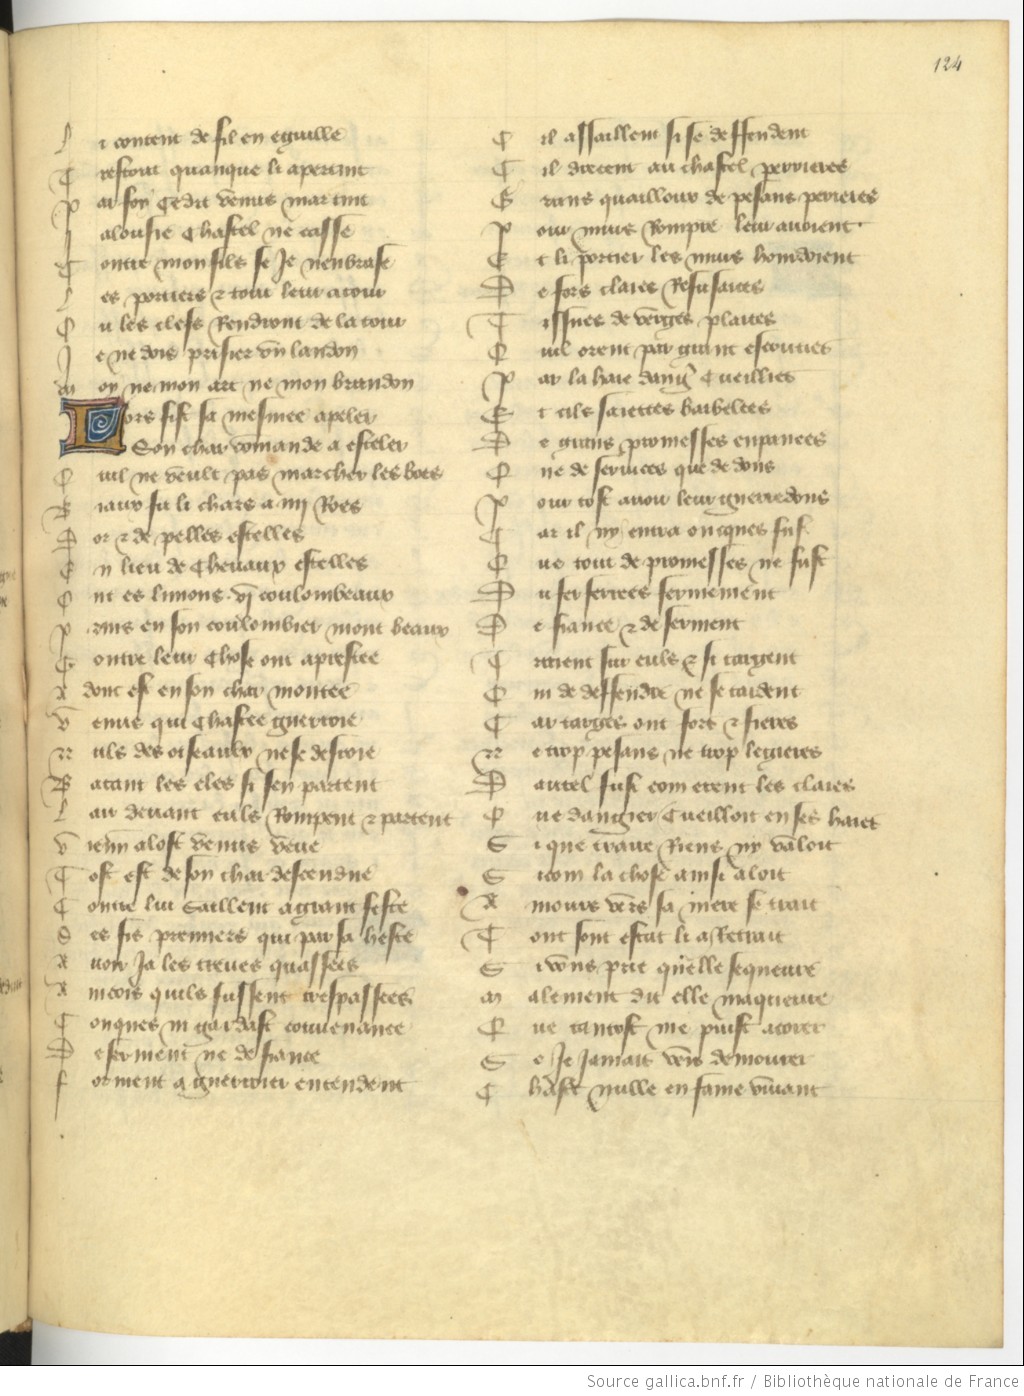 124
L i content de fil en eguille
T restout quanque li apertint
P ar foy ce dit venus martint
J alousie chastel ne casse
C ontre mon fils se Je nenbrase
L es portiers ⁊ tout leur atour
O u les clefs Rendront de la tour
J e ne dois prisier vn landon
M oy ne mon arc ne mon brandon
Lors fist sa mesniee apeler
Son char comande a esteler
Q uil ne veult pas marcher les boes
B iaux fu li chars a iiij Roes
D or ⁊ de pelles estelles
E n lieu de cheuaux estelles
O nt es limons vj coulombeaux
P rins en son coulombier mont beaux
C ontre leur chose ont aprestee
A donc est en son char montee
V enus qui chastee guerroie
N uls des oiseaulx ne se desroie
B atant les eles si sen partent
L air deuant euls Rompent ⁊ partent
V ienn a lost venus veue
T ost est de son char descendue
C ontre lui saillent a grant feste
S es fis premiers qui par sa heste
A uoit Ja les treues quassees
A incois quils fussent trespassees
C onques ni gardast conuenance
D e serment ne de fiance
F orment a guerroier entendent
C il assaillent si se deffendent
C il drecent au chastel perrieres
G rans quailloux de pesans perieres
P our murs Rompre leur auoient
E t li portier les murs hourdoient
D e fors claies Refusaices
T issues de verges plaices
Q uil orent par grant estouties
P ar la haie dang cueillies
E t cils saiettes barbelees
D e grans promesses enpanees
Q ue de seruices que de dons
P our tost auoir leur guerredons
C ar il ny entra oncques fus
Q ue tout de promesses ne fust
D u fer ferrees fermement
D e fiance ⁊ de serment
T raient sur euls ⁊ si targent
Q ui de deffendre ne se tardent
C ar targes ont fors ⁊ fieres
N e trop pesans ne trop legieres
D autel fust com erent les claies
Q ue dangier cueilloit en ses haies
S i que traire Riens ny valoit
S i com la chose ainsi aloit
A mours vers sa mere se trait
T ont son estat li a Retrait
S i vous prie quelle sequeure
M alement dit elle maqueure
Q ue tantost me puist acorer
S e Je Jamais veis demourer
C haste nulle en fame viuant
Source gallica.bnf.fr / Bibliothèque nationale de France